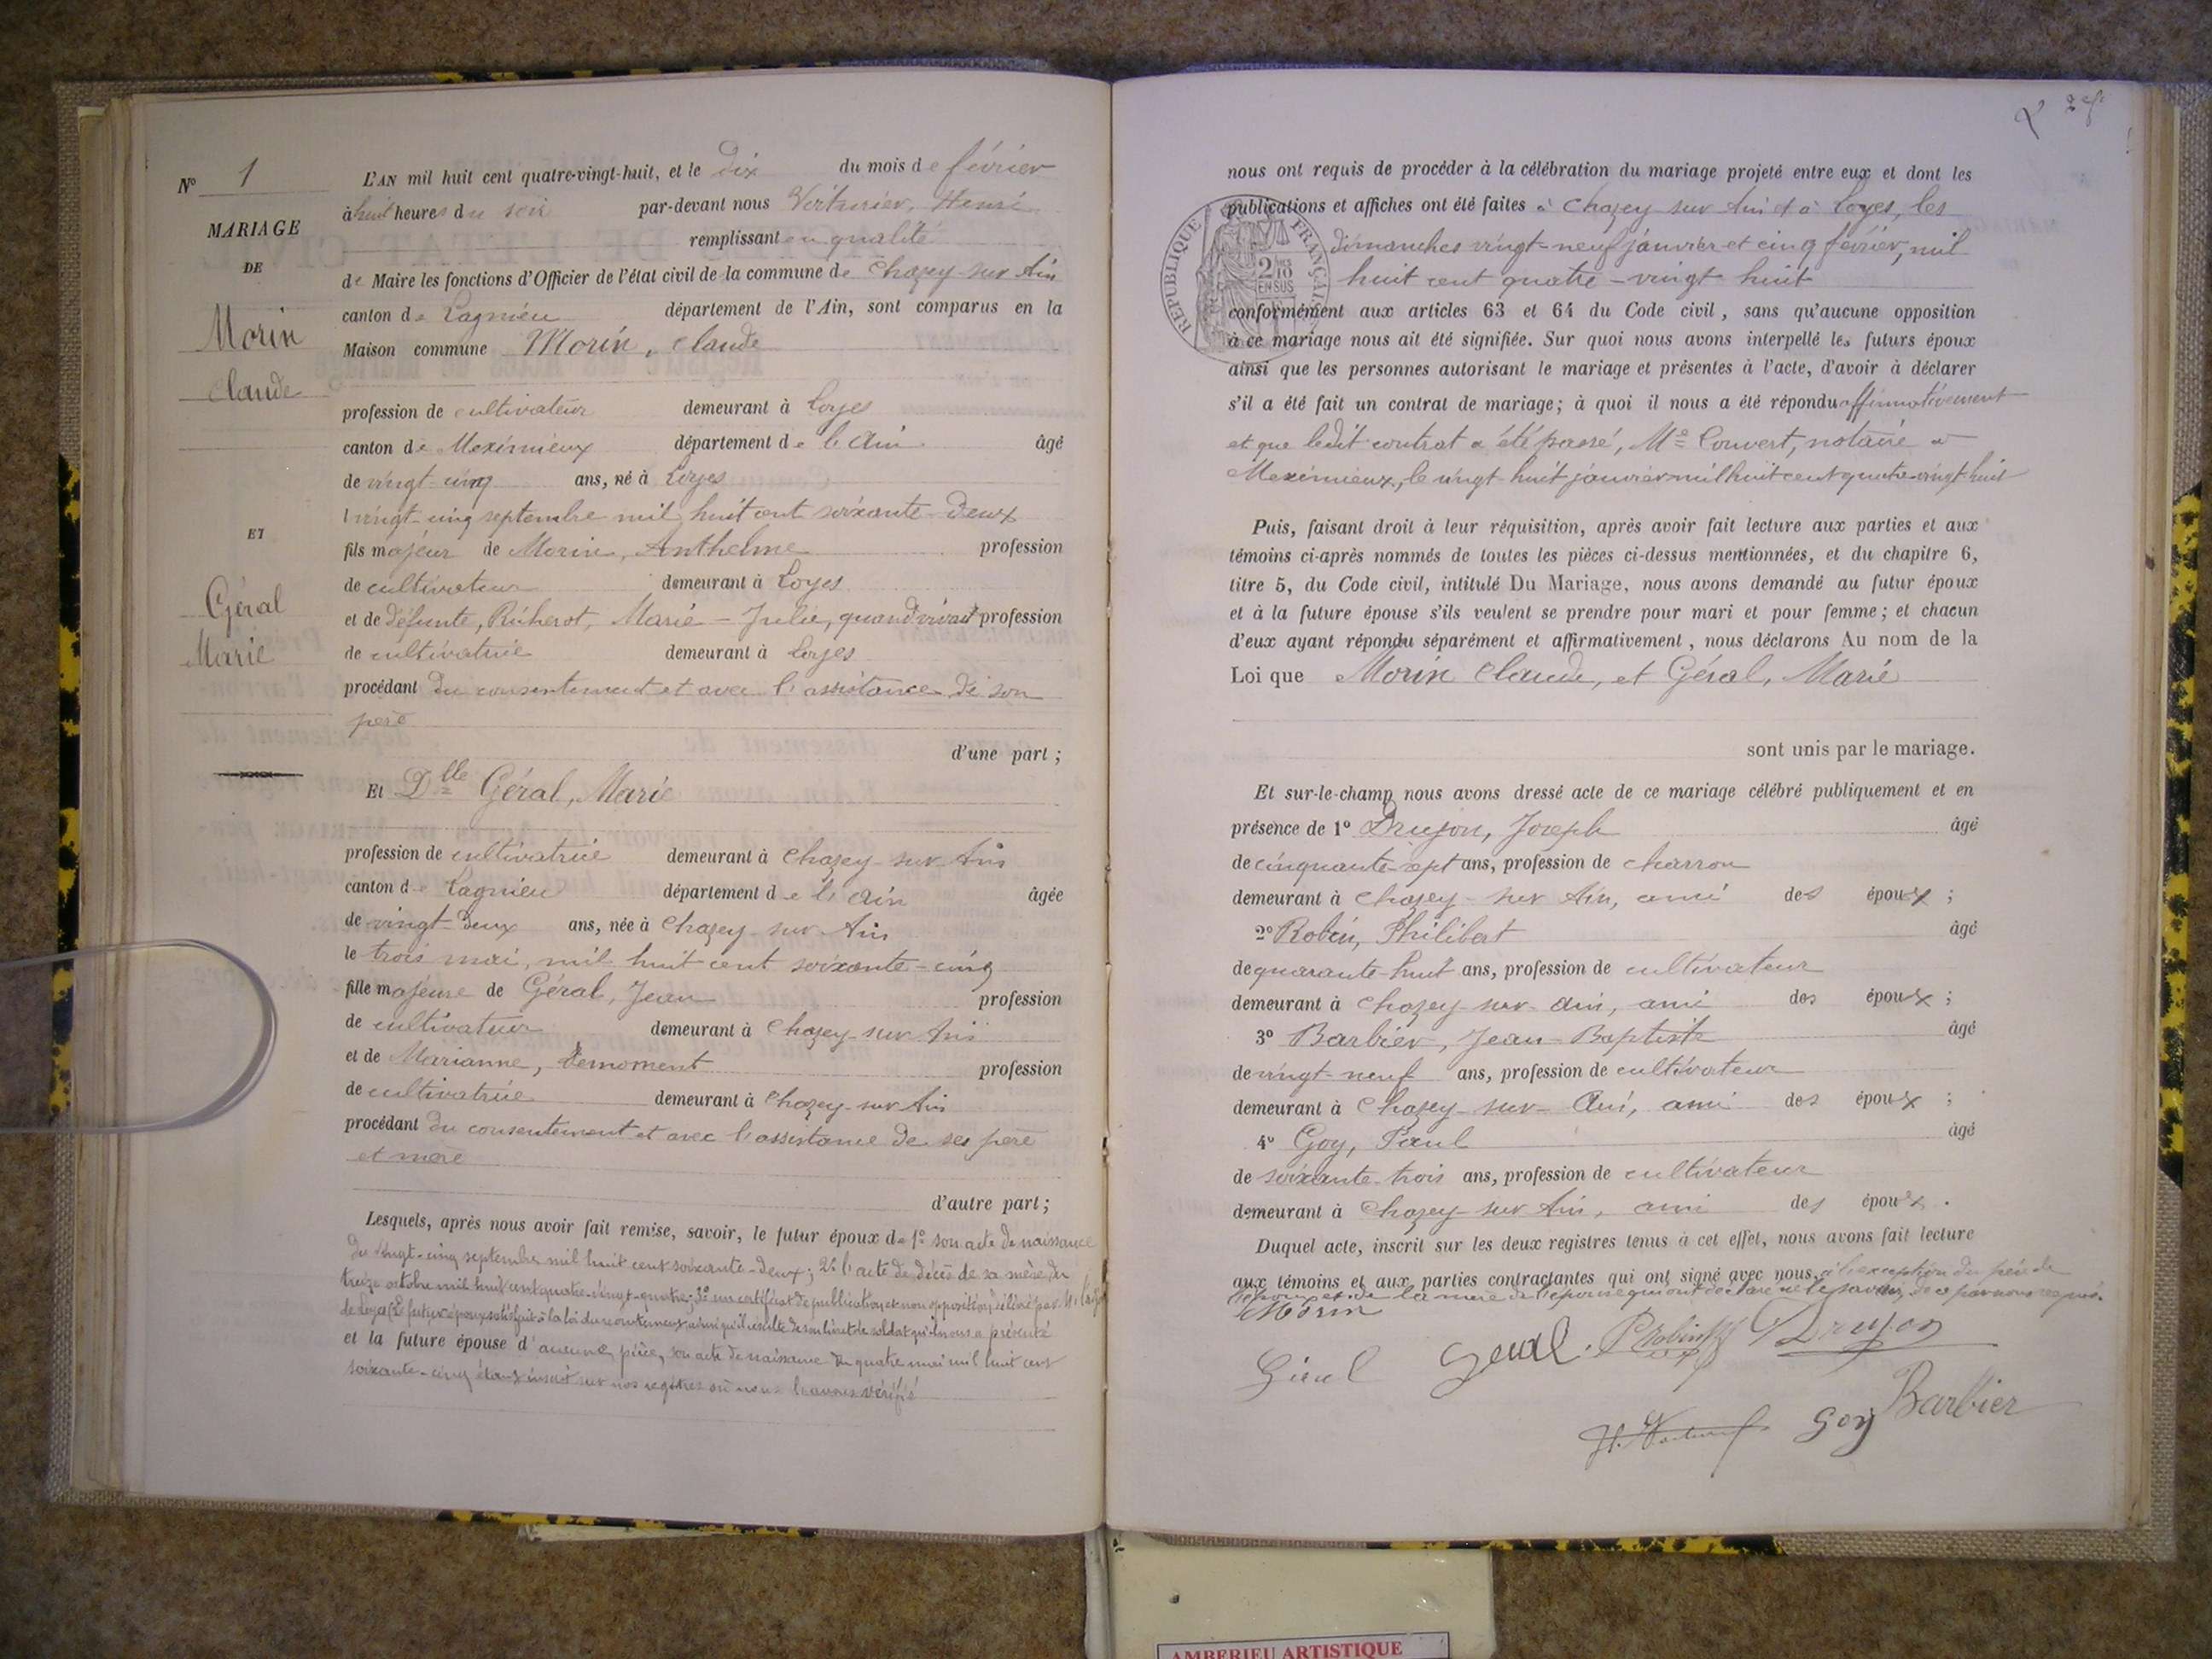 N° 1
MARIAGE
DE
Morin
Claude
ET
Géral
Marie
L'AN mil huit cent quatre-vingt-huit, et le dix du mois de février
à huit heures du soir par-devant nous Henri
remplissant en qualité
de Maire les fonctions d'Officier de l'état civil de la commune de Chazey-sur-Ain
canton de Lagnieu département de l'Ain, sont comparus en la
Maison commune Morin, Claude
profession de cultivateur demeurant à Loyes
canton de Meximieux département de l'Ain âgé
de vingt-cinq ans, né à Loyes
vingt-cinq septembre mil huit cent soixante-deux
fils majeur de Morin, Anthelme profession
de cultivateur demeurant à Loyes
et de défunte, Marie-Julie, quand vivait profession
de cultivatrice demeurant à Loyes
procédant du consentement et avec l'assistance de son
père
d'une part ;
Et Dlle Géral, Marie
profession de cultivatrice demeurant à Chazey-sur-Ain
canton de Lagnieu département de l'Ain âgée
de vingt-deux ans, née à Chazey-sur-Ain
le trois mai, mil huit cent soixante-cinq
fille majeure de Géral, Jean profession
de cultivateur demeurant à Chazey-sur-Ain
et de Marianne, Demoment profession
de cultivatrice demeurant à Chazey-sur-Ain
procédant du consentement et avec l'assistance de ses père
et mère
d'autre part ;
Lesquels, après nous avoir fait remise, savoir, le futur époux de 1° son acte de naissance
du vingt-cinq septembre mil huit cent soixante-deux ; 2° l'acte de décès de sa mère du
treize octobre mil huit cent quatre-vingt-quatre ; 3° un certificat de publication et non opposition, délivré par M. le
de Loyes (Le futur époux a satisfait à la loi du recrutement ainsi qu'il résulte de son livret de soldat qu'il nous a présenté
et la future épouse d'aucune pièce, son acte de naissance du quatre mai mil huit cent
soixante-cinq étant inscrit sur nos registres où nous l'avons vérifié
nous ont requis de procéder à la célébration du mariage projeté entre eux et dont les
publications et affiches ont été faites à Chazey-sur-Ain et à Loyes, les
dimanches vingt-neuf janvier et cinq février, mil
huit cent quatre-vingt-huit
RÉPUBLIQUE FRANÇAISE
2/10
EN SUS
conformément aux articles 63 et 64 du Code civil, sans qu'aucune opposition
à ce mariage nous ait été signifiée. Sur quoi nous avons interpellé les futurs époux
ainsi que les personnes autorisant le mariage et présentes à l'acte, d'avoir à déclarer
s'il a été fait un contrat de mariage ; à quoi il nous a été répondu affirmativement
et que ledit contrat a été passé, Me Convert, notaire à
Meximieux, le vingt-huit janvier mil huit cent quatre-vingt-huit
Puis, faisant droit à leur réquisition, après avoir fait lecture aux parties et aux
témoins ci-après nommés de toutes les pièces ci-dessus mentionnées, et du chapitre 6,
titre 5, du Code civil, intitulé Du Mariage, nous avons demandé au futur époux
et à la future épouse s'ils veulent se prendre pour mari et pour femme ; et chacun
d'eux ayant répondu séparément et affirmativement, nous déclarons Au nom de la
Loi que Morin Claude, et Géral, Marie
sont unis par le mariage.
Et sur-le-champ nous avons dressé acte de ce mariage célébré publiquement et en
présence de 1° Drujon, Joseph âgé
de cinquante-sept ans, profession de charron
demeurant à Chazey-sur-Ain, ami des époux ;
2° Robin, Philibert âgé
de quarante-huit ans, profession de cultivateur
demeurant à Chazey-sur-Ain, ami des époux ;
3° Barbier, Jean-Baptiste âgé
de vingt-neuf ans, profession de cultivateur
demeurant à Chazey-sur-Ain, ami des époux ;
4° Goy, Paul âgé
de soixante-trois ans, profession de cultivateur
demeurant à Chazey-sur-Ain, ami des époux.
Duquel acte, inscrit sur les deux registres tenus à cet effet, nous avons fait lecture
aux témoins et aux parties contractantes qui ont signé avec nous, à l'exception du père de
l'époux et de la mère de l'épouse qui ont déclaré ne le savoir, de ce par nous requis.
Morin
Géral Géral. P Robin Drujon
Goy Barbier
AMBERIEU ARTISTIQUE